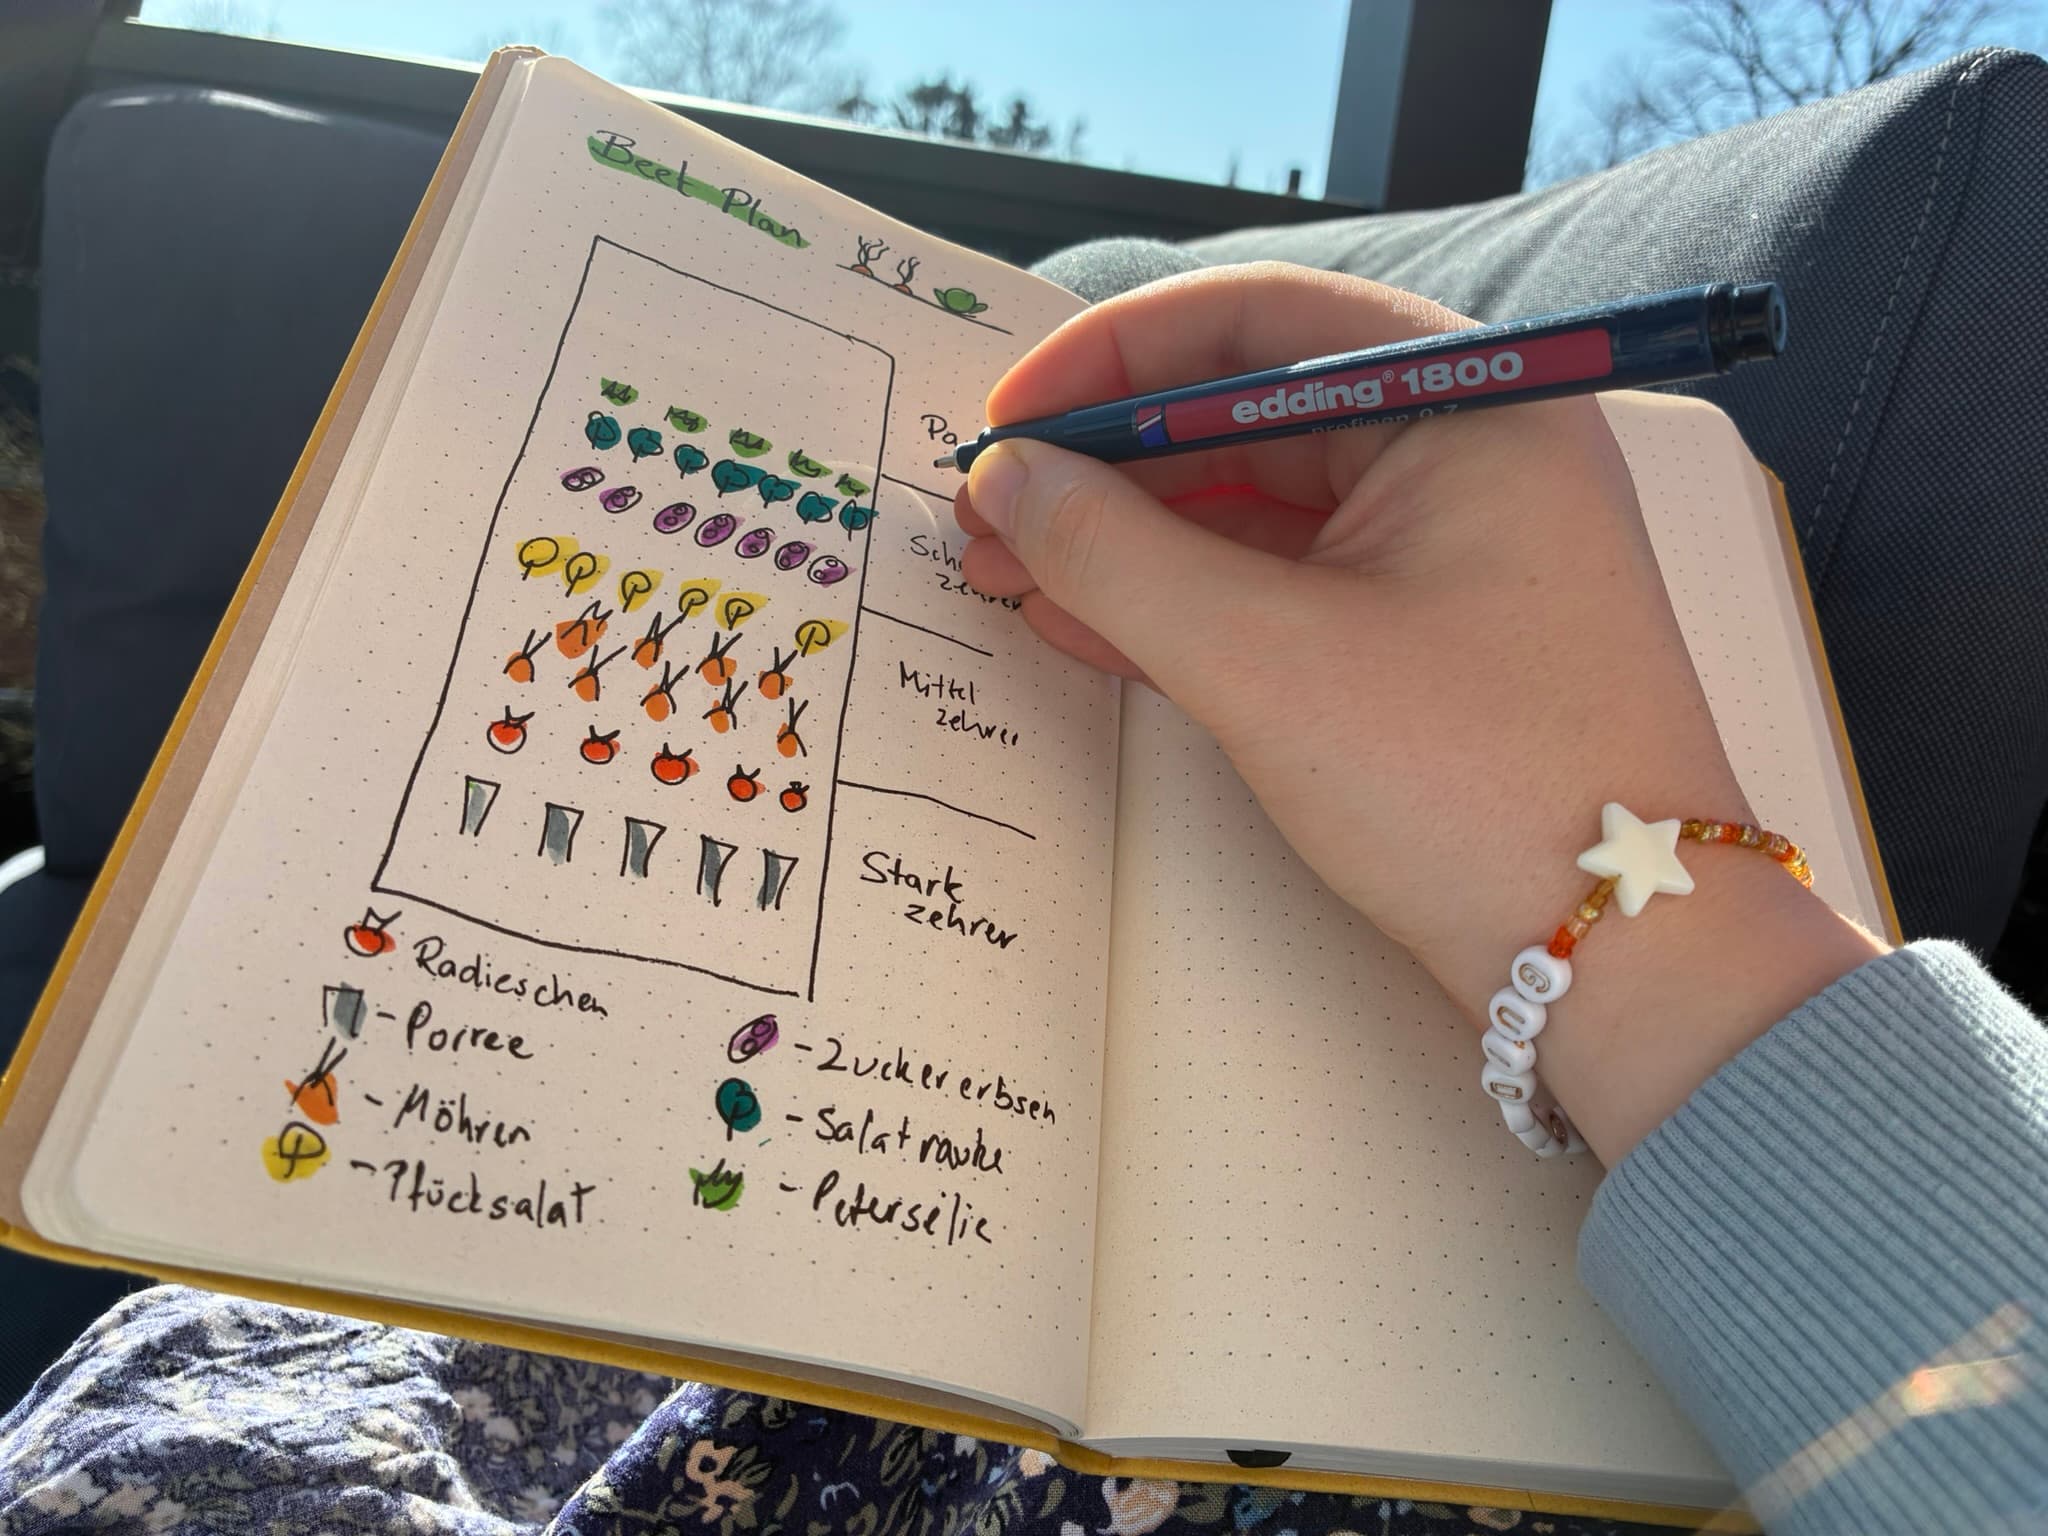 Beet Plan
Pa
Sch
zehrer
Mittel
zehrer
Stark
zehrer
Radieschen
- Porree
- Möhren
- Pflücksalat
- Zuckererbsen
- Salatrauke
- Petersilie
edding® 1800
profipen 0.7